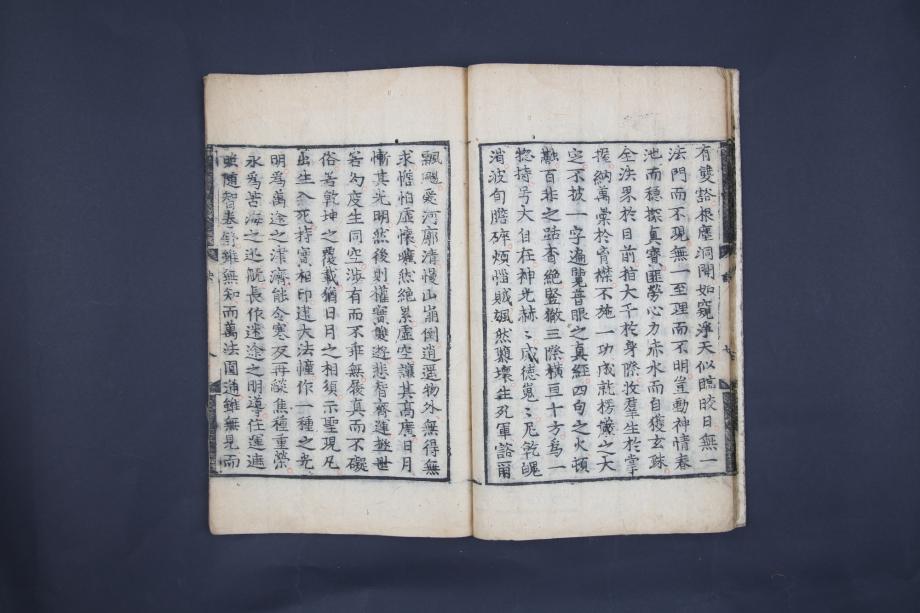 有雙豁根塵洞開如窺淨天似臨皎日無一
法門而不現無一至理而不明豈動神情春
池而穩探真寶匪勞心力赤水而自獲玄珠
全法界於目前指大千於身際收羣生於掌
握納萬彙於胷襟不施一功成就楞嚴之大
定不披一字遍覽普眼之真經四句之火頓
融百非之路杳絶竪徹三際橫亘十方爲一
惣持号大自在神光赫〻威德巍〻尼乾魄
消波旬膽碎煩惱賊颯然墮壞生死軍豁爾
飄颺愛河廓清慢山崩倒逍遥物外無得無
求憺怕虛懷曠然絶累虛空讓其高廣日月
慚其光明然後則權實雙遊悲智齊運拯世
若幻度生同空涉有而不乖無履真而不礙
俗若乾坤之覆載猶日月之相須示聖現凡
出生入死持實相印建大法幢作一種之光
明爲萬途之津濟能令寒灰再燄焦種重榮
永爲苦海之迅航長作迷途之明導任運遮
照隨智卷舒雖無知而萬法圓通雖無見而